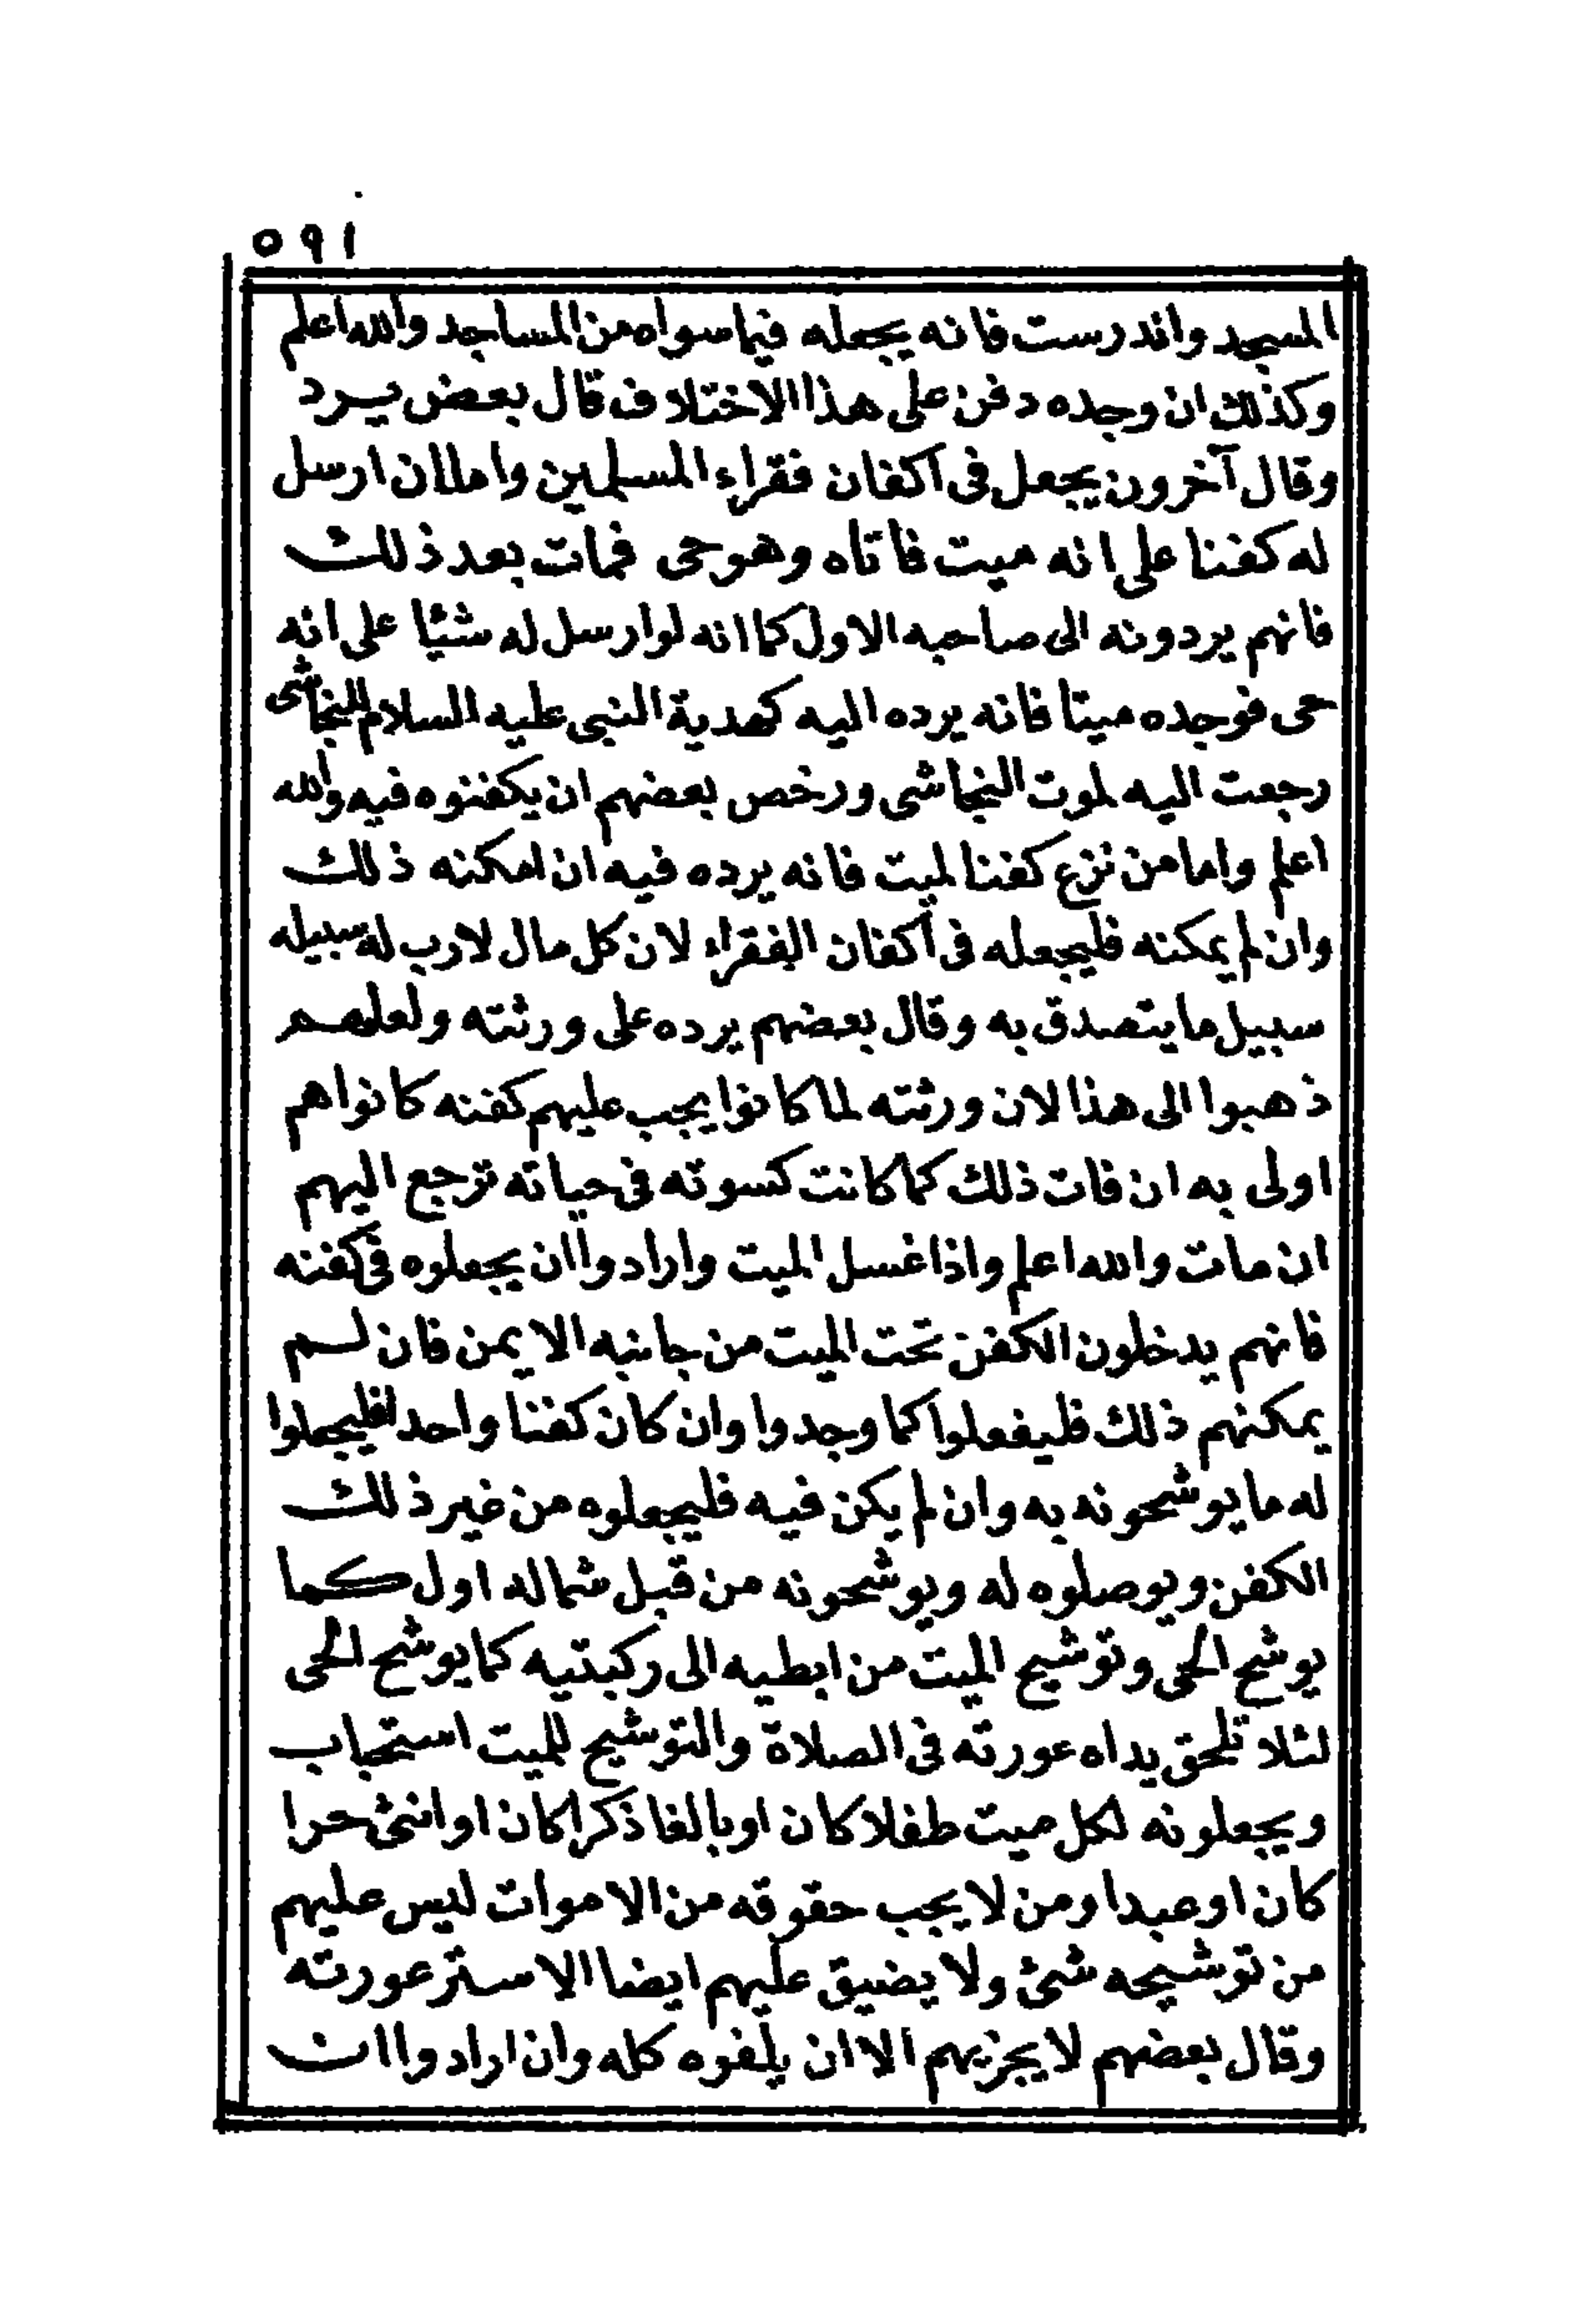 ٥٩١
المسجد واندرست فانه يجعله فيما سواه من المساجد والله اعلم
وكذلك ان وجده دفن على هذا الاختلاف قال بعض يرد
وقال آخرون يجعل في اكفان فقراء المسلمين واما ان ارسل
له كفنا على انه ميت فاتاه وهو حى فمات بعد ذلك
فانهم يردونه الى صاحبه الاول كما انه لو ارسل له شيئا على انه
حى فوجده ميتا فانه يرده اليه كهدية النبى عليه السلام للنجاشى
رجعت اليه لموت النجاشى ورخص بعضهم ان يكفنوه فيه والله
اعلم واما من نزع كفنا لميت فانه يرده فيه ان امكنه ذلك
وان لم يمكنه فليجعله فى اكفان الفقراء لان كل مال لا رب له سبيله
سبيل ما يتصدق به وقال بعضهم يرده على ورثته ولعلهم
ذهبوا الى هذا لان ورثته لما كانوا يجب عليهم كفنه كانوا هم
اولى به ان فات ذلك كما كانت كسوته فى حياته ترجع اليهم
ان مات والله اعلم واذا غسل الميت وارادوا ان يجعلوه فى كفنه
فانهم يدخلون الكفن تحت الميت من جانبه الايمن فان لم
يمكنهم ذلك فليفعلوا كما وجدوا وان كان كفنا واحدا فليجعلوا
له ما يوشحونه به وان لم يكن فيه فليجعلوه من غير ذلك
الكفن ويوصلوه له ويوشحونه من قبل شماله اول كما
يوشح الحى وتوشيح الميت من ابطيه الى ركبتيه كما يوشح الحى
لئلا تلحق يداه عورته فى الصلاة والتوشيح للميت استحباب
ويجعلونه لكل ميت طفلا كان او بالغا ذكرا كان او انثى حرا
كان او عبدا ومن لا يجب حقوقه من الاموات ليس عليهم
من توشيحه شئ ولا يضيق عليهم ايضا الا ستر عورته
وقال بعضهم لا يجزيهم الا ان يلفوه كله وان ارادوا ان